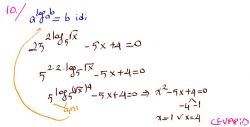 10./
a^{log_a b} = b idi
25^{2log_5 √x} - 5x + 4 = 0
5^{2·2·log_5 √x} - 5x + 4 = 0
5^{log_5 (√x)^4} - 5x + 4 = 0 ⇒ x² - 5x + 4 = 0
-4 -1
x = 1 ∨ x = 4
CEVAP: D